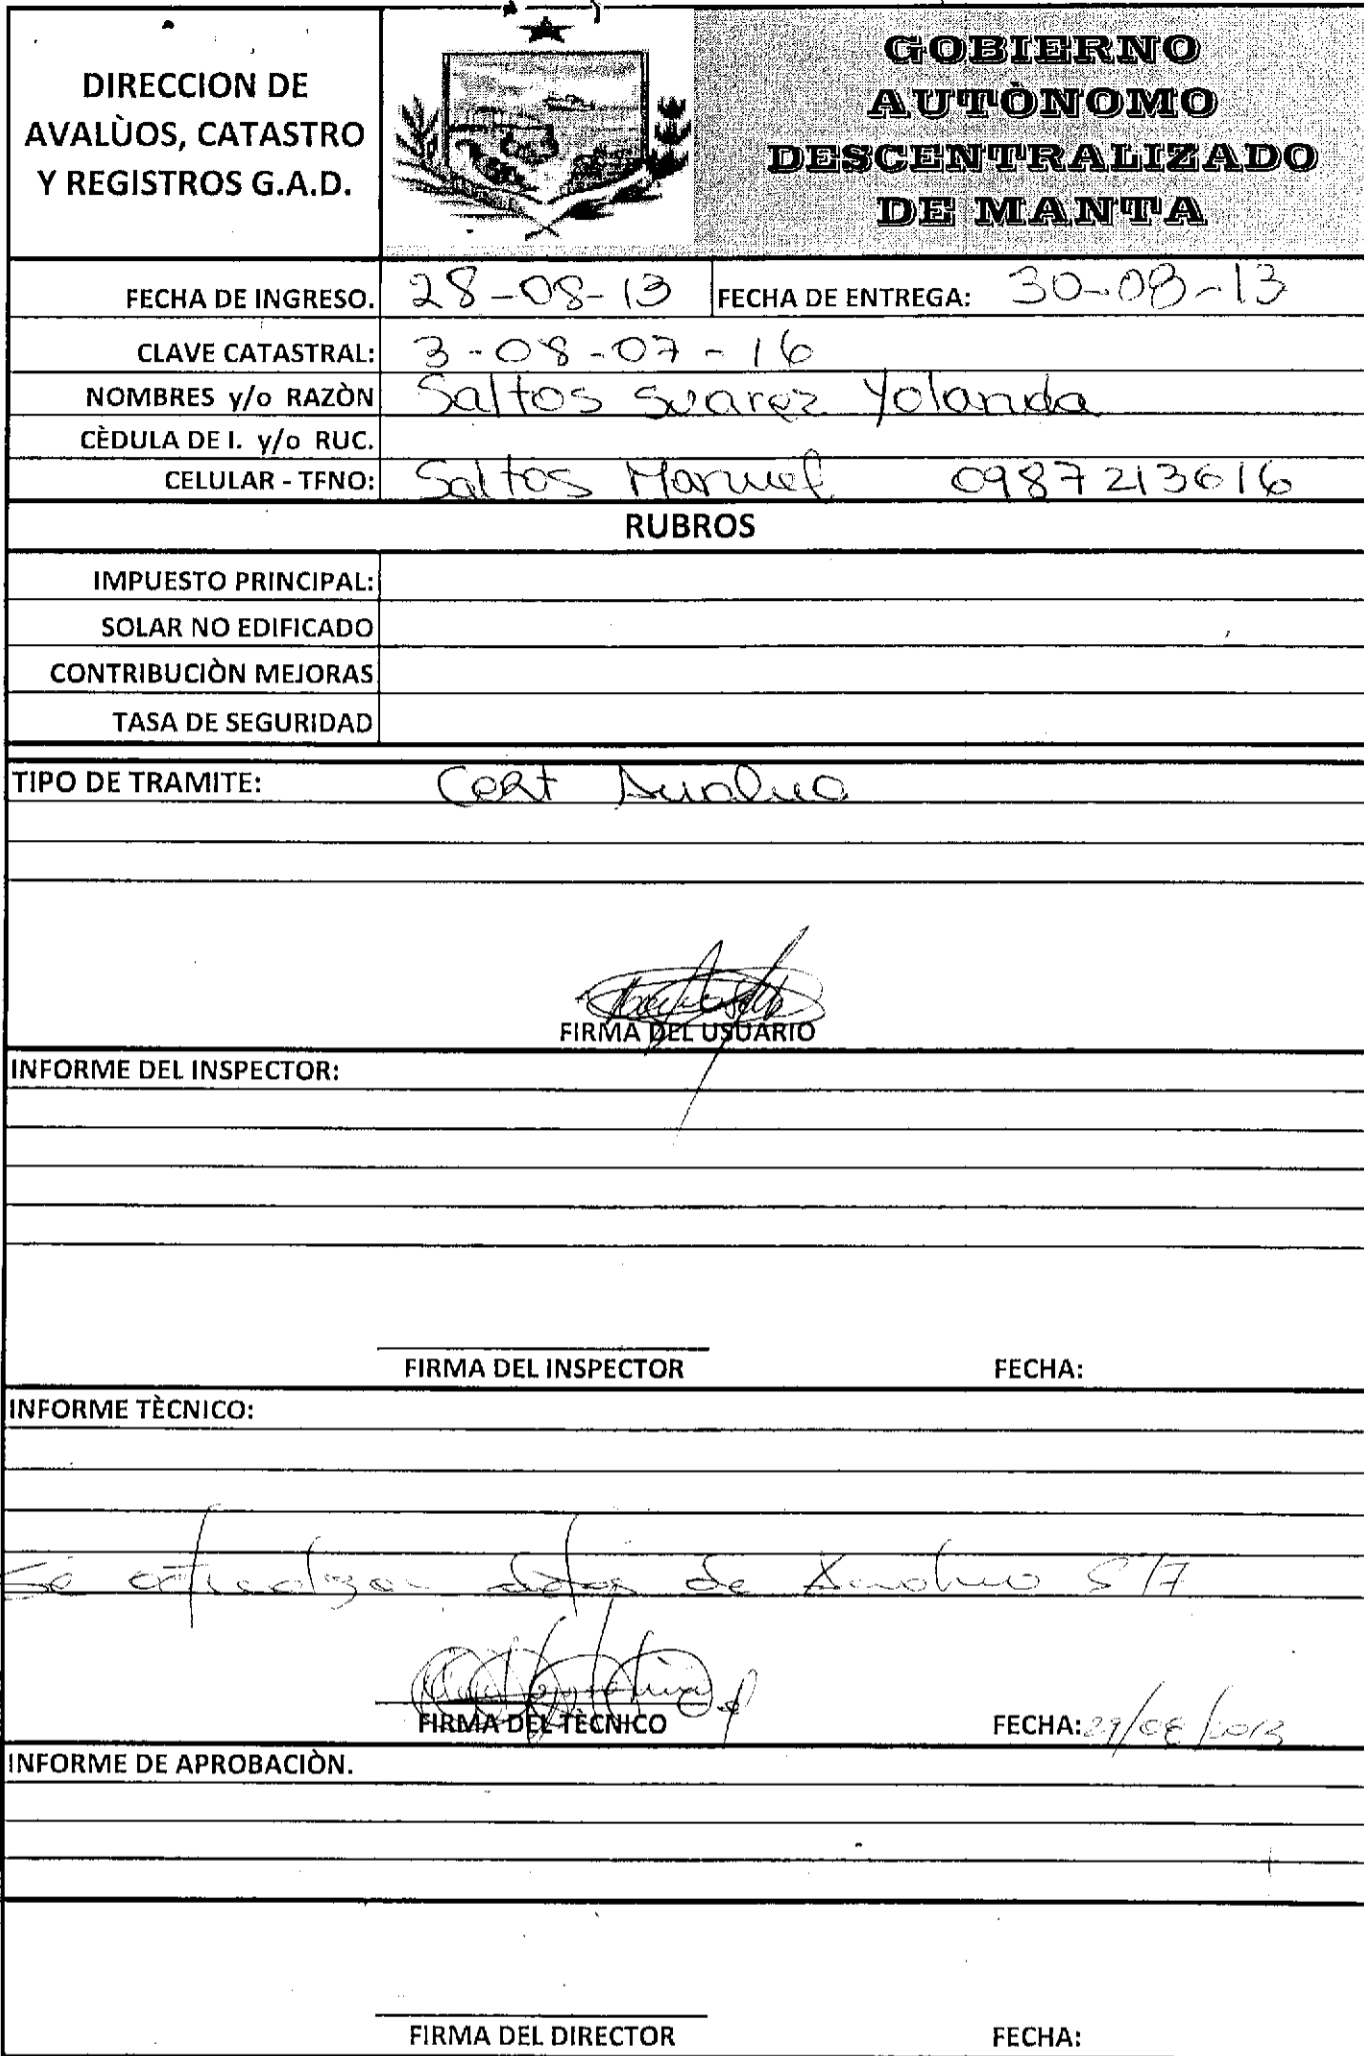 DIRECCION DE
AVALÙOS, CATASTRO
Y REGISTROS G.A.D.
GOBIERNO
AUTÒNOMO
DESCENTRALIZADO
DE MANTA
FECHA DE INGRESO. 28-08-13 FECHA DE ENTREGA: 30-08-13
CLAVE CATASTRAL: 3-08-07-16
NOMBRES y/o RAZÒN Saltos Suarez Yolanda
CÈDULA DE I. y/o RUC.
CELULAR - TFNO: Saltos Manuel 0987213616
RUBROS
IMPUESTO PRINCIPAL:
SOLAR NO EDIFICADO
CONTRIBUCIÒN MEJORAS
TASA DE SEGURIDAD
TIPO DE TRAMITE: Cert Avaluo
FIRMA DEL USUARIO
INFORME DEL INSPECTOR:
FIRMA DEL INSPECTOR FECHA:
INFORME TÈCNICO:
Se datos de Avaluo
FIRMA DEL TÈCNICO FECHA: 29/08/2013
INFORME DE APROBACIÒN.
FIRMA DEL DIRECTOR FECHA: